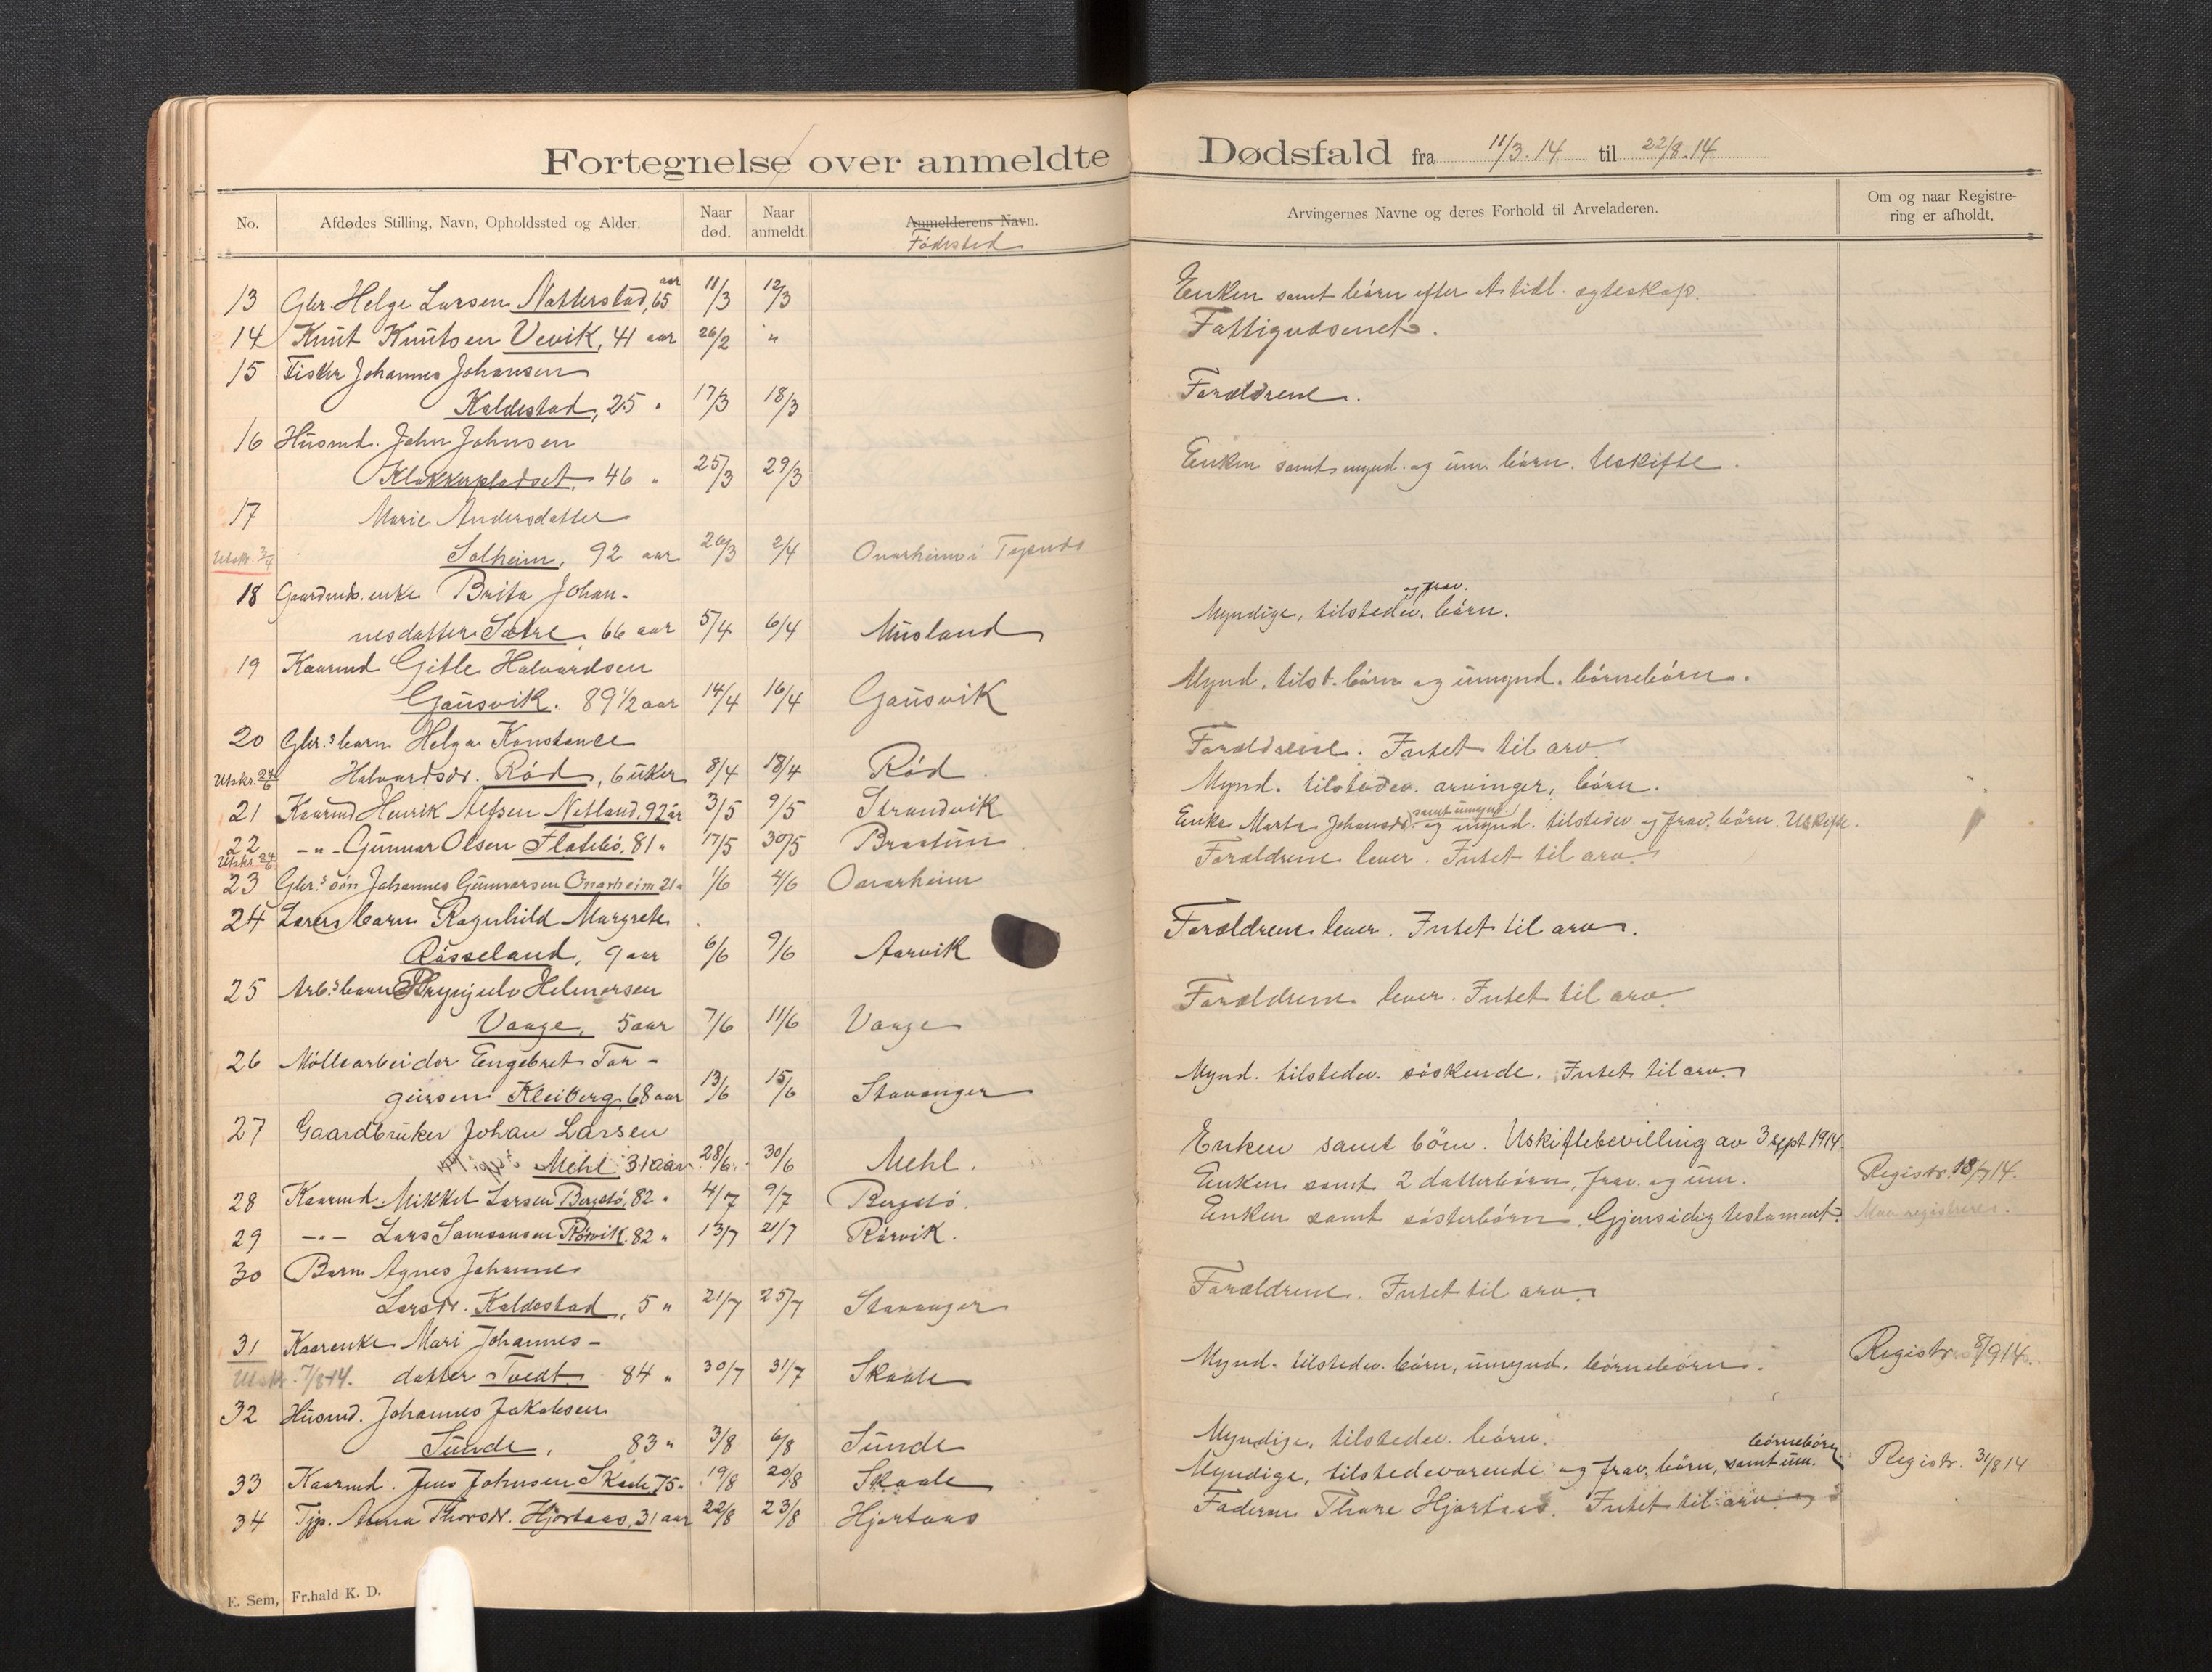 Fortegnelse over anmeldte Dødsfald fra 11/3.14 til 22/8.14
No. Afdødes Stilling, Navn, Opholdssted og Alder. Naar død. Naar anmeldt Anmelderens Navn. Fødested Arvingernes Navne og deres Forhold til Arveladeren. Om og naar Registrering er afholdt.
13 Gbr. Helge Larsen Natterstad, 65 aar 11/3 12/3 Enken samt børn efter tidl. ægteskap.
14 Knut Knutsen Vevik, 41 aar 26/2 " Fattigvæsenet.
15 Fisker Johannes Johansen
Kaldestad, 25 " 17/3 18/3 Forældrene.
16 Husmd. John Johnsen
Klokkerpladset 46 " 25/3 29/3 Enken samt mynd. og um. børn. Uskifte.
17 Marie Andersdatter
Utskr. 3/4 Solheim, 92 aar 26/3 2/4 Onarheim i Tysnes
18 Gaardmds. enke Brita Johan-
nesdatter Sætre, 66 aar 5/4 6/4 Musland Myndige, tilstedev. og frav. børn.
19 Kaarmd Gitle Halvardsen
Gausvik. 89 1/2 aar 14/4 16/4 Gausvik Mynd. tilst. børn og umynd. børnebørn.
20 Gbr.s barn Helga Konstance
Utskr. 24/6 Halvardsdr. Rød, 6 uker 8/4 18/4 Rød Forældrene. Intet til arv.
21 Kaarmd Henrik Alfsen Netland, 92 år 3/5 9/5 Strandvik Mynd. tilstedev. arvinger, børn.
22 -"- Gunnar Olsen Flatebø, 81 " 17/5 30/5 Enke Marta Johansdr samt umynd. og mynd. tilstedev. og frav. børn. Uskifte.
Utskr. 24/6
23 Gbr.s søn Johannes Gunnarsen Onarheim 21 " 1/6 4/6 Onarheim Forældrene lever. Intet til arv.
24 Lærers barn Ragnhild Margrete
Røsseland, 9 aar 6/6 9/6 Aarvik Forældrene lever. Intet til arv.
25 Arb.s barn Brynjulv Helmersen
Vaage, 5 aar 7/6 11/6 Vaage Forældrene lever. Intet til arv.
26 Møllearbeider Engebret Tor-
gersen Kleiberg, 68 aar 13/6 15/6 Stavanger Mynd. tilstedev. søskende. Intet til arv.
27 Gaardbruker Johan Larsen
Mehl 31 aar 28/6 30/6 Mehl. Enken samt børn. Uskiftebevilling av 3 sept 1914.
28 Kaarmd Mikkel Larsen Bergstø, 82 " 4/7 9/7 Bergstø. Enken samt 2 datterbørn, frav. og um. Registr. 18/7 14.
29 -"- Lars Samsonsen Rørvik, 82 " 13/7 21/7 Rørvik. Enken samt søsterbørn. Gjensidig testament. Maa registreres.
30 Barn Agnes Johanne
Larsdr. Kaldestad, 5 " 21/7 25/7 Stavanger Forældrene. Intet til arv.
31 Kaarenke Mari Johannes-
Utskr. 7/8 14. datter Tvedt 84 " 30/7 31/7 Skaale Mynd. tilstedev. børn, umynd. børnebørn. Registr. 8/9 14.
32 Husmd. Johannes Jakobsen
Sunde, 83 " 3/8 6/8 Sunde Myndige, tilstedev. børn.
33 Kaarmd. Jens Johnsen Skaale, 75 " 19/8 20/8 Skaale Myndige, tilstedeværende og frav. børn, samt um. børnebørn Registr. 31/8 14
34 Tjp. Anna Thorsdr. Hjortaas, 31 aar 22/8 23/8 Hjortaas Faderen Thore Hjortaas. Intet til arv.
E. Sem, Fr.hald K. D.